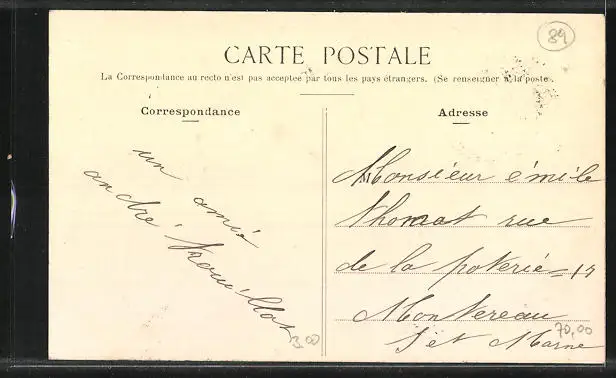 89
CARTE POSTALE
La Correspondance au recto n'est pas acceptée par tous les pays étrangers. (Se renseigner à la poste).
Correspondance
un amié
andré
3,00
Adresse
Monsieur émile
thomat rue
de la poterié = 17
Montereau
70,00
S et Marne